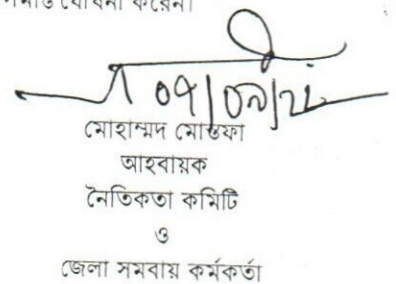 ঘোষনা করেন।
মোহাম্মদ মোস্তফা
আহবায়ক
নৈতিকতা কমিটি
ও
জেলা সমবায় কর্মকর্তা